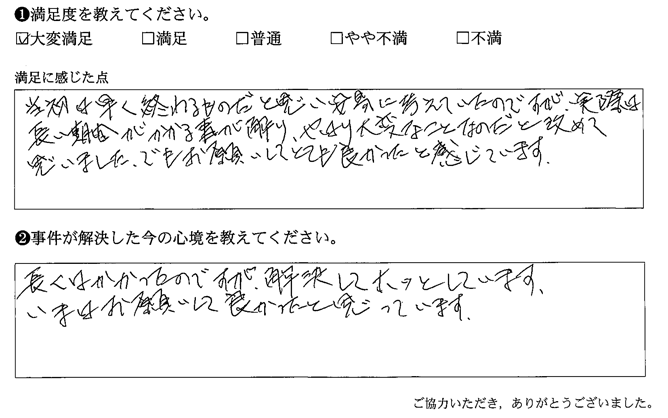 ❶満足度を教えてください。
☑大変満足 □満足 □普通 □やや不満 □不満
満足に感じた点
当初は早く終わるものだと思い安易に考えていたのですが、実際は
長い期間がかかる事が解り、やはり大変なことなのだと改めて
思いました。でもお願いしてとても良かったと感じています。
❷事件が解決した今の心境を教えてください。
長くはかかったのですが、解決してホッとしています。
いまはお願いして良かったと思っています。
ご協力いただき，ありがとうございました。